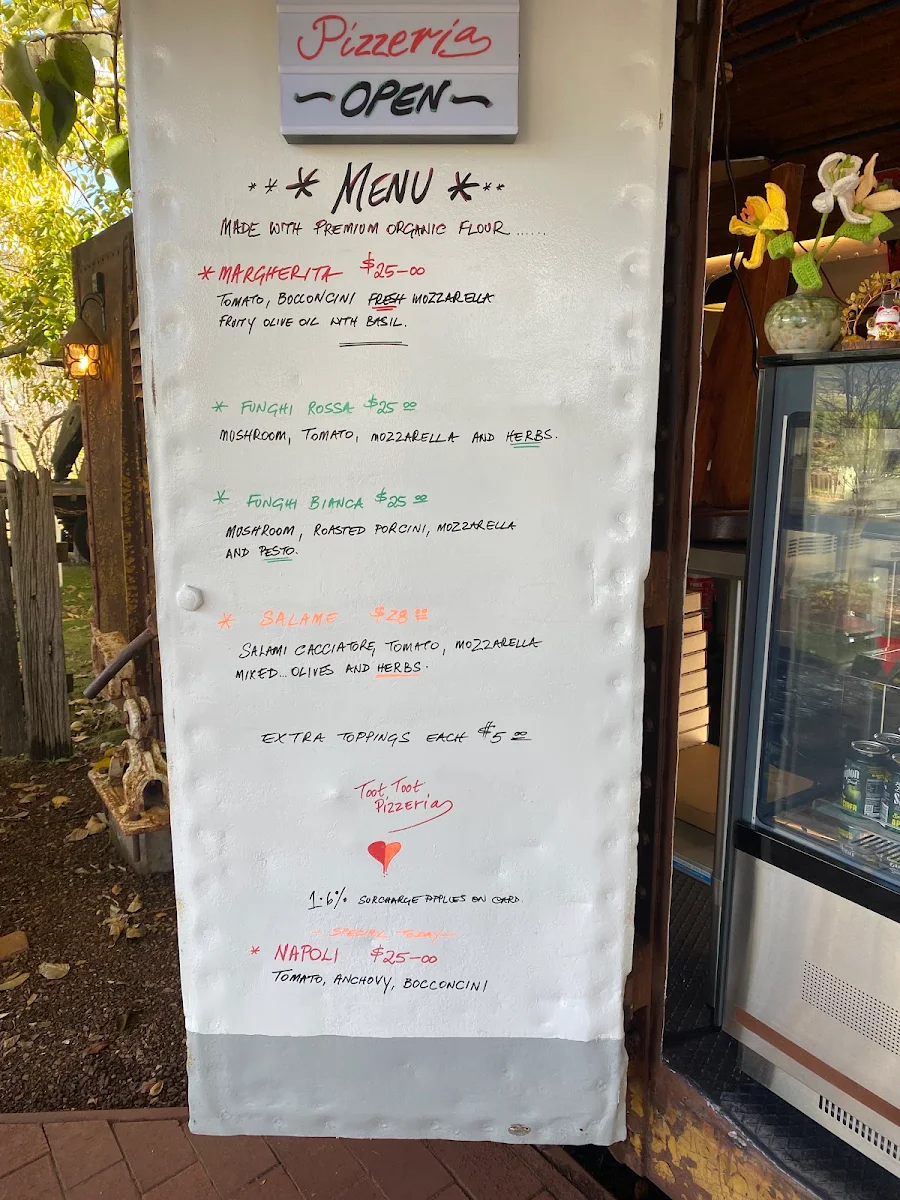 Pizzeria
~OPEN~
*** MENU ***
MADE WITH PREMIUM ORGANIC FLOUR......
* MARGHERITA $25-00
TOMATO, BOCCONCINI FRESH MOZZARELLA
FRUITY OLIVE OIL WITH BASIL.
* FUNGHI ROSSA $25 00
MUSHROOM, TOMATO, MOZZARELLA AND HERBS.
* FUNGHI BIANCA $25 00
MUSHROOM, ROASTED PORCINI, MOZZARELLA
AND PESTO.
* SALAME $28 00
SALAMI CACCIATORE, TOMATO, MOZZARELLA
MIXED... OLIVES AND HERBS.
EXTRA TOPPINGS EACH $5 00
Toot Toot
Pizzeria
1.6% SURCHARGE APPLIES ON CARD.
- SPECIAL TODAY -
* NAPOLI $25-00
TOMATO, ANCHOVY, BOCCONCINI